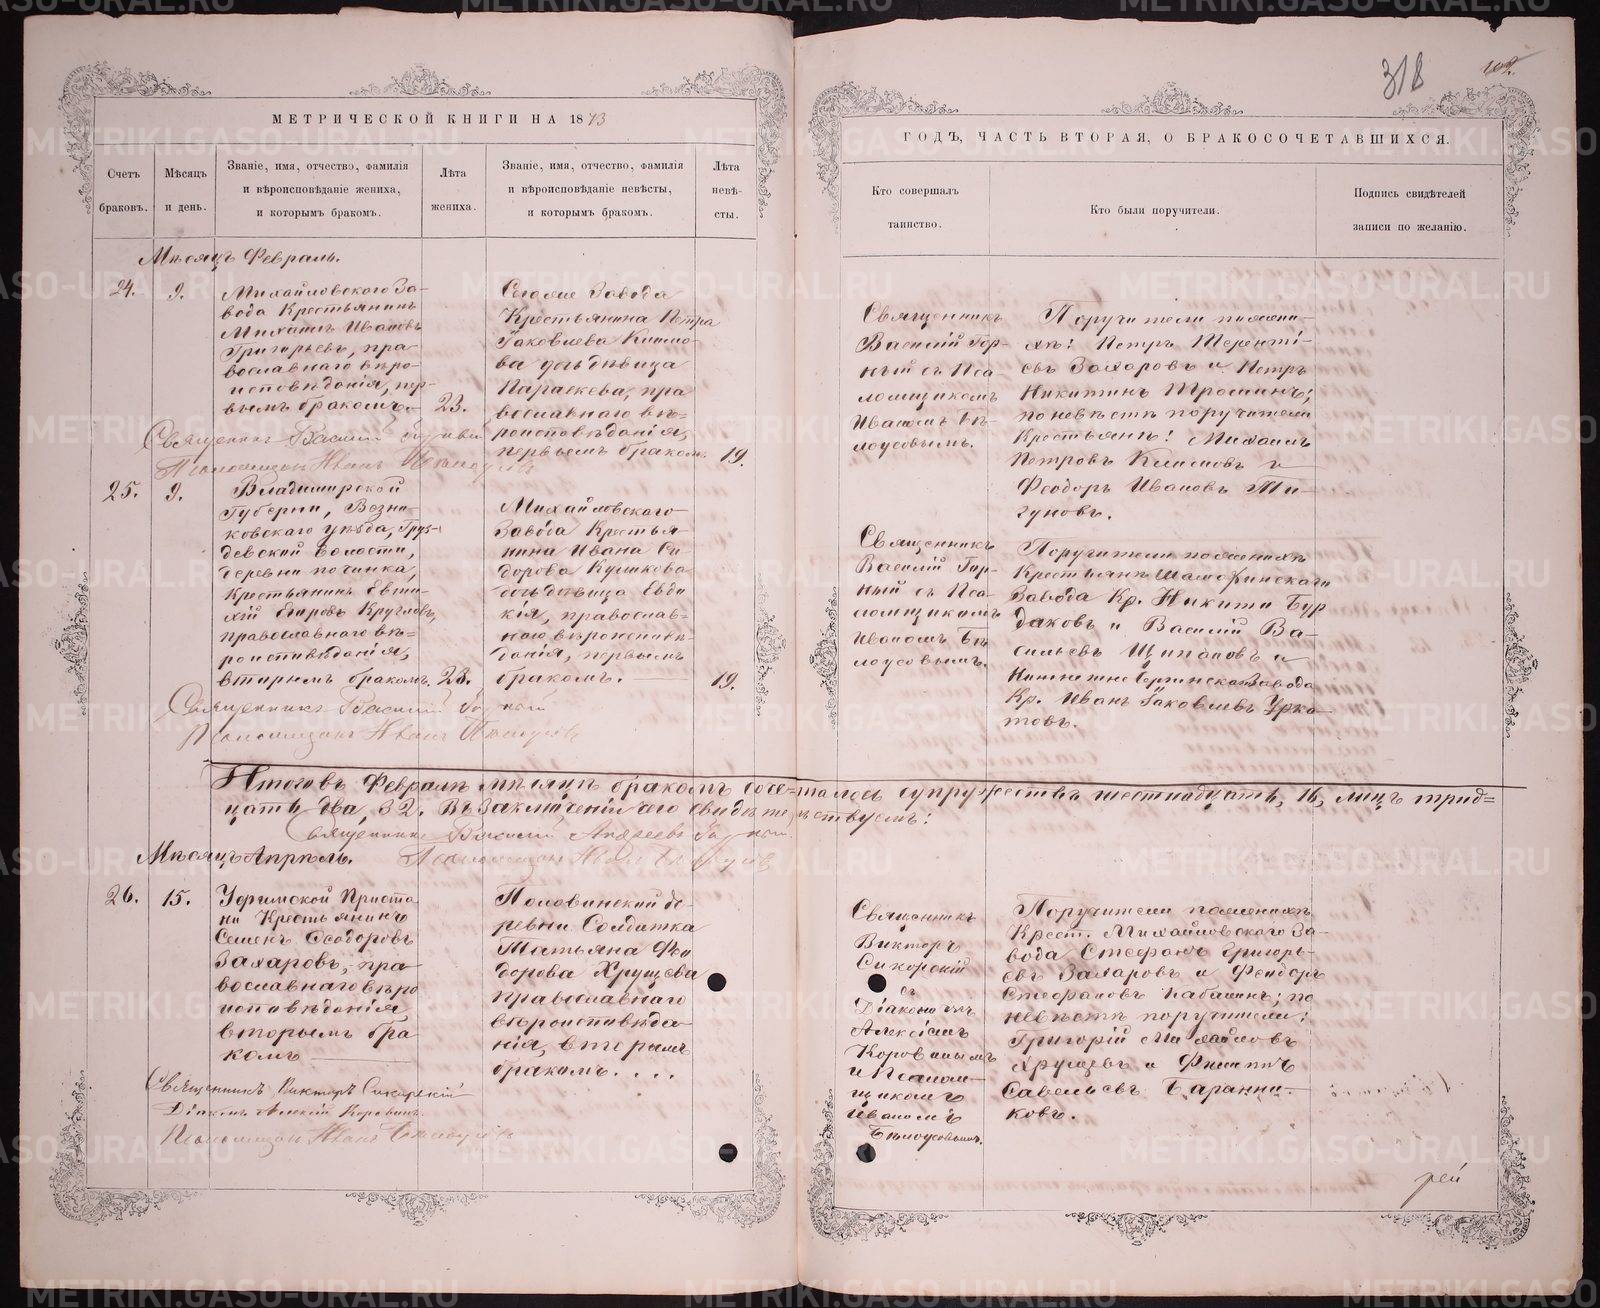 318
МЕТРИЧЕСКОЙ КНИГИ НА 1873
ГОДЪ, ЧАСТЬ ВТОРАЯ, О БРАКОСОЧЕТАВШИХСЯ.
Счетъ
браковъ.
Мѣсяцъ
и день.
Званіе, имя, отчество, фамилія
и вѣроисповѣданіе жениха,
и которымъ бракомъ.
Лѣта
жениха.
Званіе, имя, отчество, фамилія
и вѣроисповѣданіе невѣсты,
и которымъ бракомъ.
Лѣта
невѣ-
сты.
Кто совершалъ
таинство.
Кто были поручители.
Подпись свидѣтелей
записи по желанію.
Мѣсяцъ Февраль.
24.
9.
Михайловскаго За-
вода Крестьянинъ
Михаилъ Ивановъ
Григорьевъ, пра-
вославнаго вѣро-
исповѣданія, пер-
вымъ бракомъ.
23.
Завода
Крестьянина Петра
Іаковлева Климо-
ва дочь дѣвица
Параскева, пра
вославнаго вѣ-
роисповѣданія,
первымъ бракомъ.
19.
Священникъ
Василій Гор-
ный съ Пса-
ломщикомъ
Иваномъ Бѣ-
лоусовымъ.
Поручители
Петръ Теренті-
евъ Захаровъ и Петръ
Никитинъ
по невѣстѣ поручители
Крестьяне: Михаилъ
Петровъ Климовъ и
Ѳеодоръ Ивановъ Ти-
гуновъ.
Священникъ Василій Горный
Псаломщикъ Иванъ Бѣлоусовъ
25.
9.
Владимирской
Губерніи, Вязни-
ковскаго уѣзда, Груз-
девской волости,
деревни починка,
Крестьянинъ Евти-
хій Егоровъ Кругловъ,
православнаго вѣ-
роисповѣданія,
вторымъ бракомъ.
28.
Михайловскаго
Завода Крестья-
нина Ивана Си
дорова Куликова
дочь дѣвица Евдо
кія, православ-
наго вѣроисповѣ-
данія, первымъ
бракомъ.
19.
Священникъ
Василій Гор-
ный съ Пса-
ломщикомъ
Иваномъ Бѣ
лоусовымъ.
Поручители по женихѣ
Крестьяне
Завода Кр. Никита Бур
даковъ и Василій Ва-
сильевъ Щипановъ и
Нижне Сергинскаго Завода
Кр. Иванъ Іаковлевъ Урка-
товъ.
Священникъ Василій Горный
Псаломщикъ Иванъ Бѣлоусовъ
Итого въ Февралѣ мѣсяцѣ бракомъ сочеталось супружествъ шестнадцать, 16, лицъ трид-
цать два, 32. Въ заключеніи чего свидѣтельствуемъ:
Священникъ Василій Андреевъ Горный.
Псаломщикъ Иванъ Бѣлоусовъ
Мѣсяцъ Апрѣль.
26.
15.
Уфимской Приста
ни Крестьянинъ
Семенъ Ѳеодоровъ
Захаровъ, пра-
вославнаго вѣро
исповѣданія,
вторымъ бра
комъ
Половинской де-
ревни Солдатка
Татьяна Ѳео
дорова Хрущева
православнаго
вѣроисповѣда-
нія, вторымъ
бракомъ. . . .
Священникъ
Викторъ
Сикорскій
съ
Діакономъ
Алексіемъ
Коровинымъ
и Псалом-
щикомъ
Иваномъ
Бѣлоусовымъ.
Поручители по женихѣ
Крест. Михайловскаго За-
вода Стефанъ Григорь-
евъ Захаровъ и Ѳеодоръ
Стефановъ Бабашинъ; по
невѣстѣ поручители:
Григорій Михайловъ
Хрущевъ и Филиппъ
Савельевъ Баранни-
ковъ.
Священникъ Викторъ Сикорскій
Діаконъ Алексій Коровинъ.
Псаломщикъ Иванъ Бѣлоусовъ
рей
METRIKI.GASO-URAL.RU